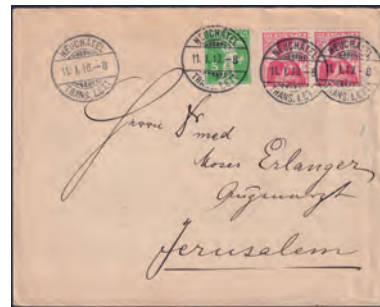 NEUCHATEL
11.I.10.-8
TRANS. LETT.
NEUCHATEL
11.I.10.-8
NEUCHATEL
11.I.10.-8
TRANS. LETT.
NEUCHATEL
11.I.10.-8
TRANS. LETT.
Herrn Dr med
Moses Erlanger
Augenarzt
Jerusalem